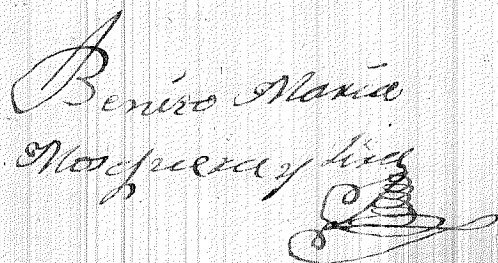 Benito María
Mosquera y Lira